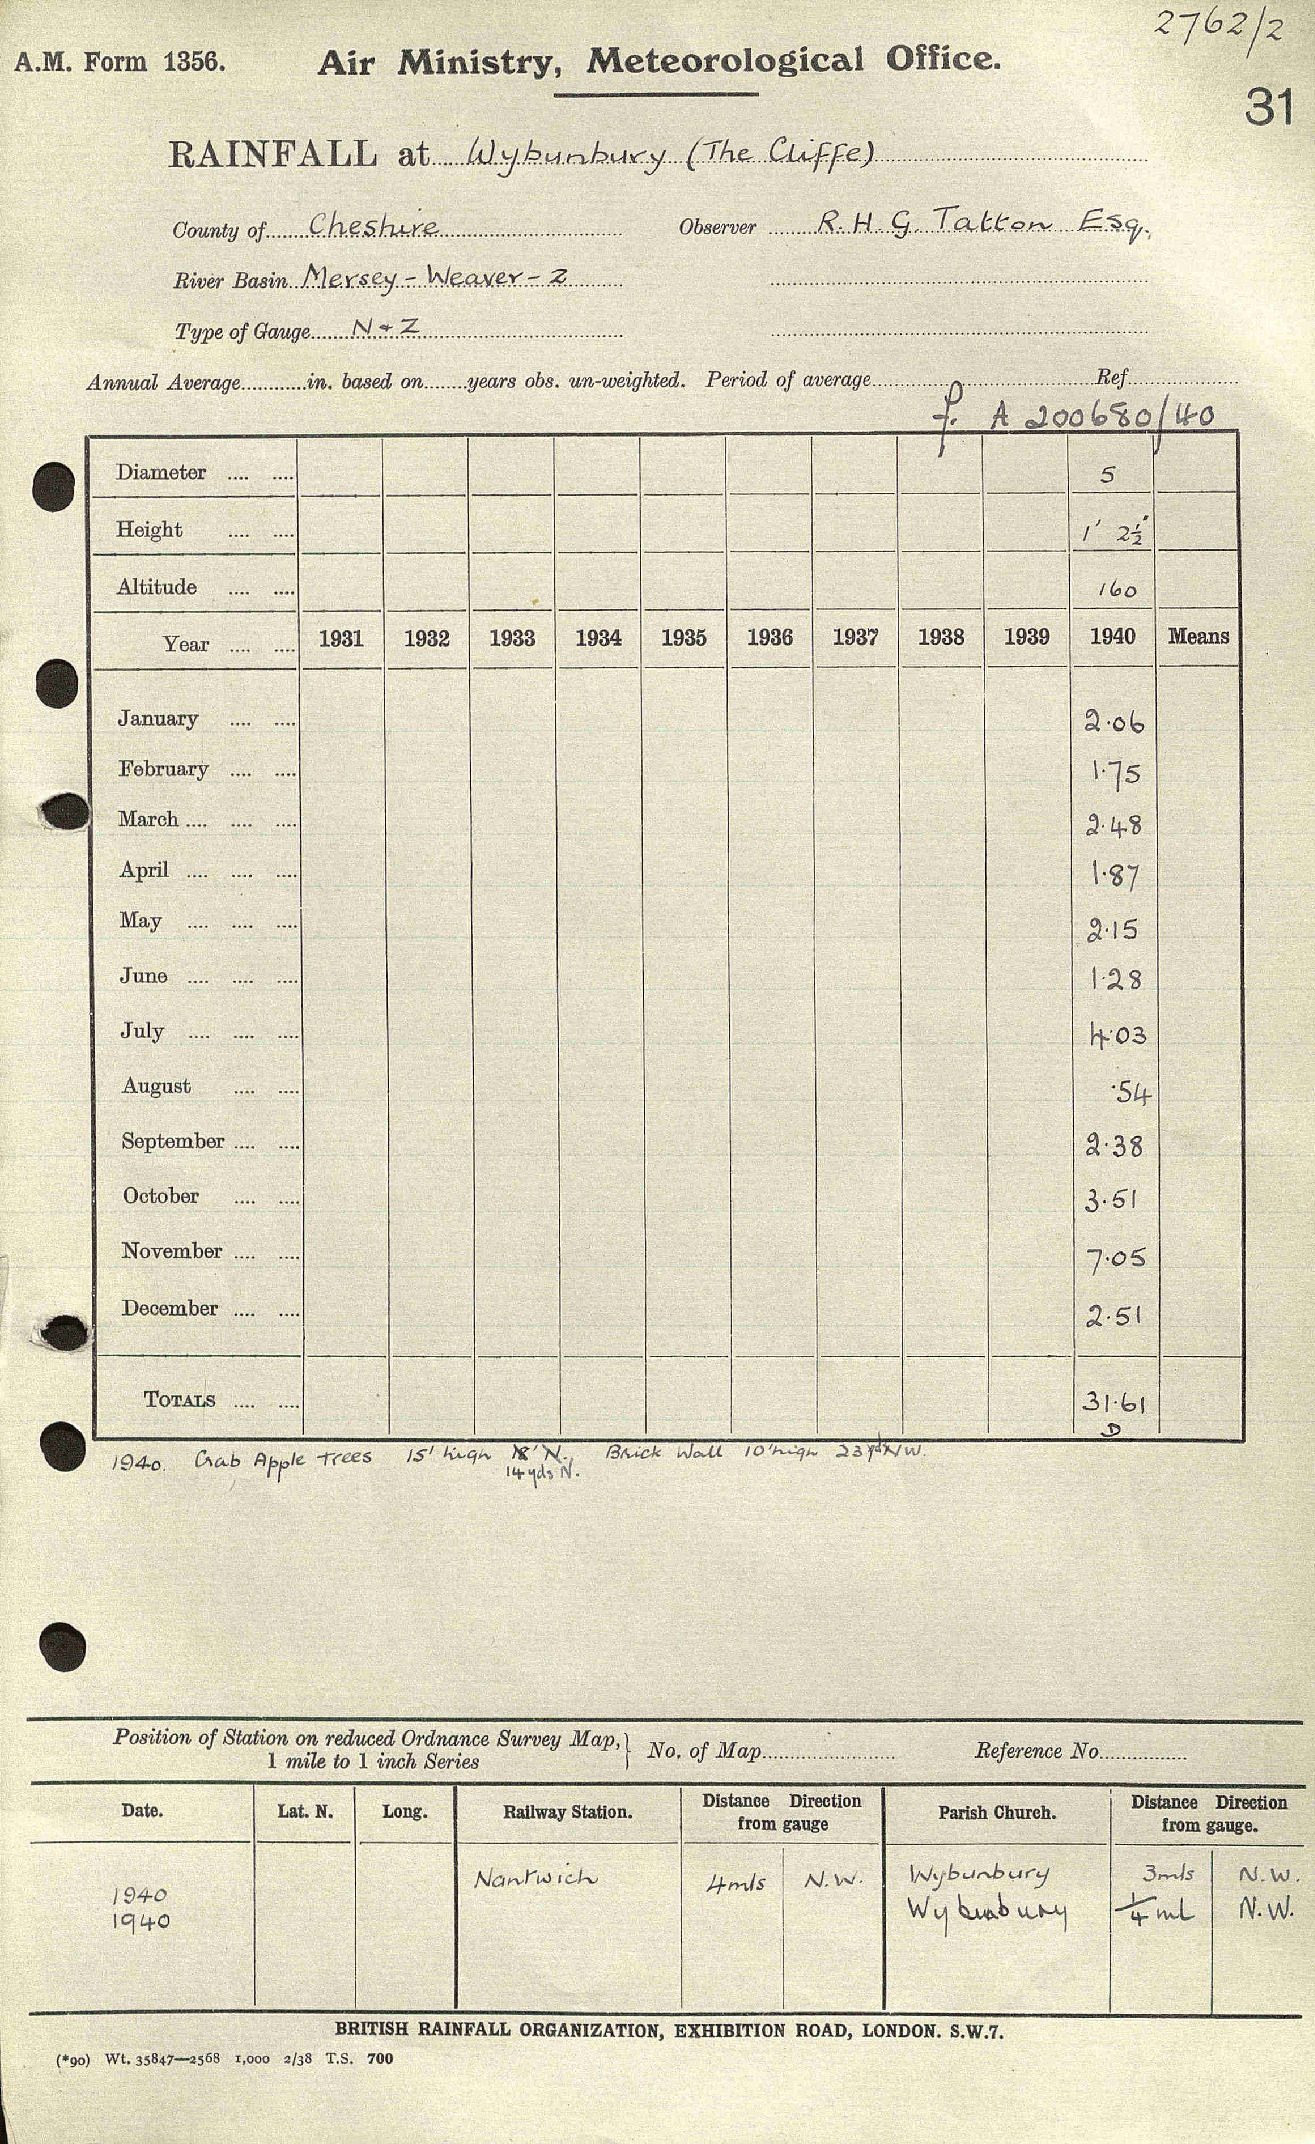 2762/2
A.M. Form 1356. Air Ministry, Meteorological Office.
31
RAINFALL at Wybunbury (The Cliffe)
County of Cheshire Observer R. H. G. Tatton Esq.
River Basin Mersey - Weaver - 2
Type of Gauge N + Z
Annual Average............in. based on........years obs. un-weighted. Period of average........................Ref...............
f. A 200680/40
Diameter .... .... 5
Height .... .... 1' 2½"
Altitude .... .... 160
Year .... .... 1931 1932 1933 1934 1935 1936 1937 1938 1939 1940 Means
January .... .... 2.06
February .... .... 1.75
March .... .... .... 2.48
April .... .... .... 1.87
May .... .... .... 2.15
June .... .... .... 1.28
July .... .... .... 4.03
August .... .... .54
September .... .... 2.38
October .... .... 3.51
November .... .... 7.05
December .... .... 2.51
TOTALS .... .... 31.61
D
1940. Crab Apple Trees 15' high 18' N. Brick Wall 10' high 23 yds N.W.
14 yds N.
Position of Station on reduced Ordnance Survey Map, 1 mile to 1 inch Series } No. of Map........................ Reference No...............
Date. Lat. N. Long. Railway Station. Distance Direction from gauge Parish Church. Distance Direction from gauge.
1940 Nantwich 4 mls N.W. Wybunbury 3 mls N.W.
1940 Wybunbury ¼ ml N.W.
BRITISH RAINFALL ORGANIZATION, EXHIBITION ROAD, LONDON. S.W.7.
(*90) Wt. 35847—2568 1,000 2/38 T.S. 700